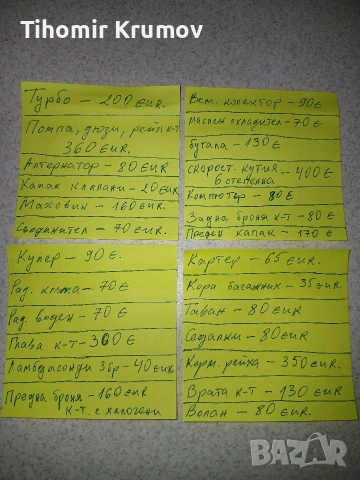 Tihomir Krumov
Турбо – 200 EUR.
Помпа, дюзи, рейл к-т
360 EUR.
Алтернатор – 80 EUR
Капак клапани – 20 EUR
Маховик – 160 EUR.
Съединител – 70 EUR.
Всм. колектор – 90 €
Маслен охладител – 70 €
бутала – 130 €
скорост. кутия – 400 €
6 степенна
Компютър – 80 €
Задна броня к-т – 80 €
Преден капак – 170 €
Купер – 90 €.
Рад. климa – 70 €
Рад воден – 70 €
Глава к-т – 360 €
Ламбдасонди 3бр – 40 EUR.
Предна броня – 160 EUR
к-т. с халогени
Картер – 65 EUR.
Кора багажник – 35 EUR.
Таван – 80 EUR
Седалки – 80 EUR
Корм. рейка – 350 EUR.
Врата к-т – 130 EUR
Волан – 80 EUR.
BAZAR